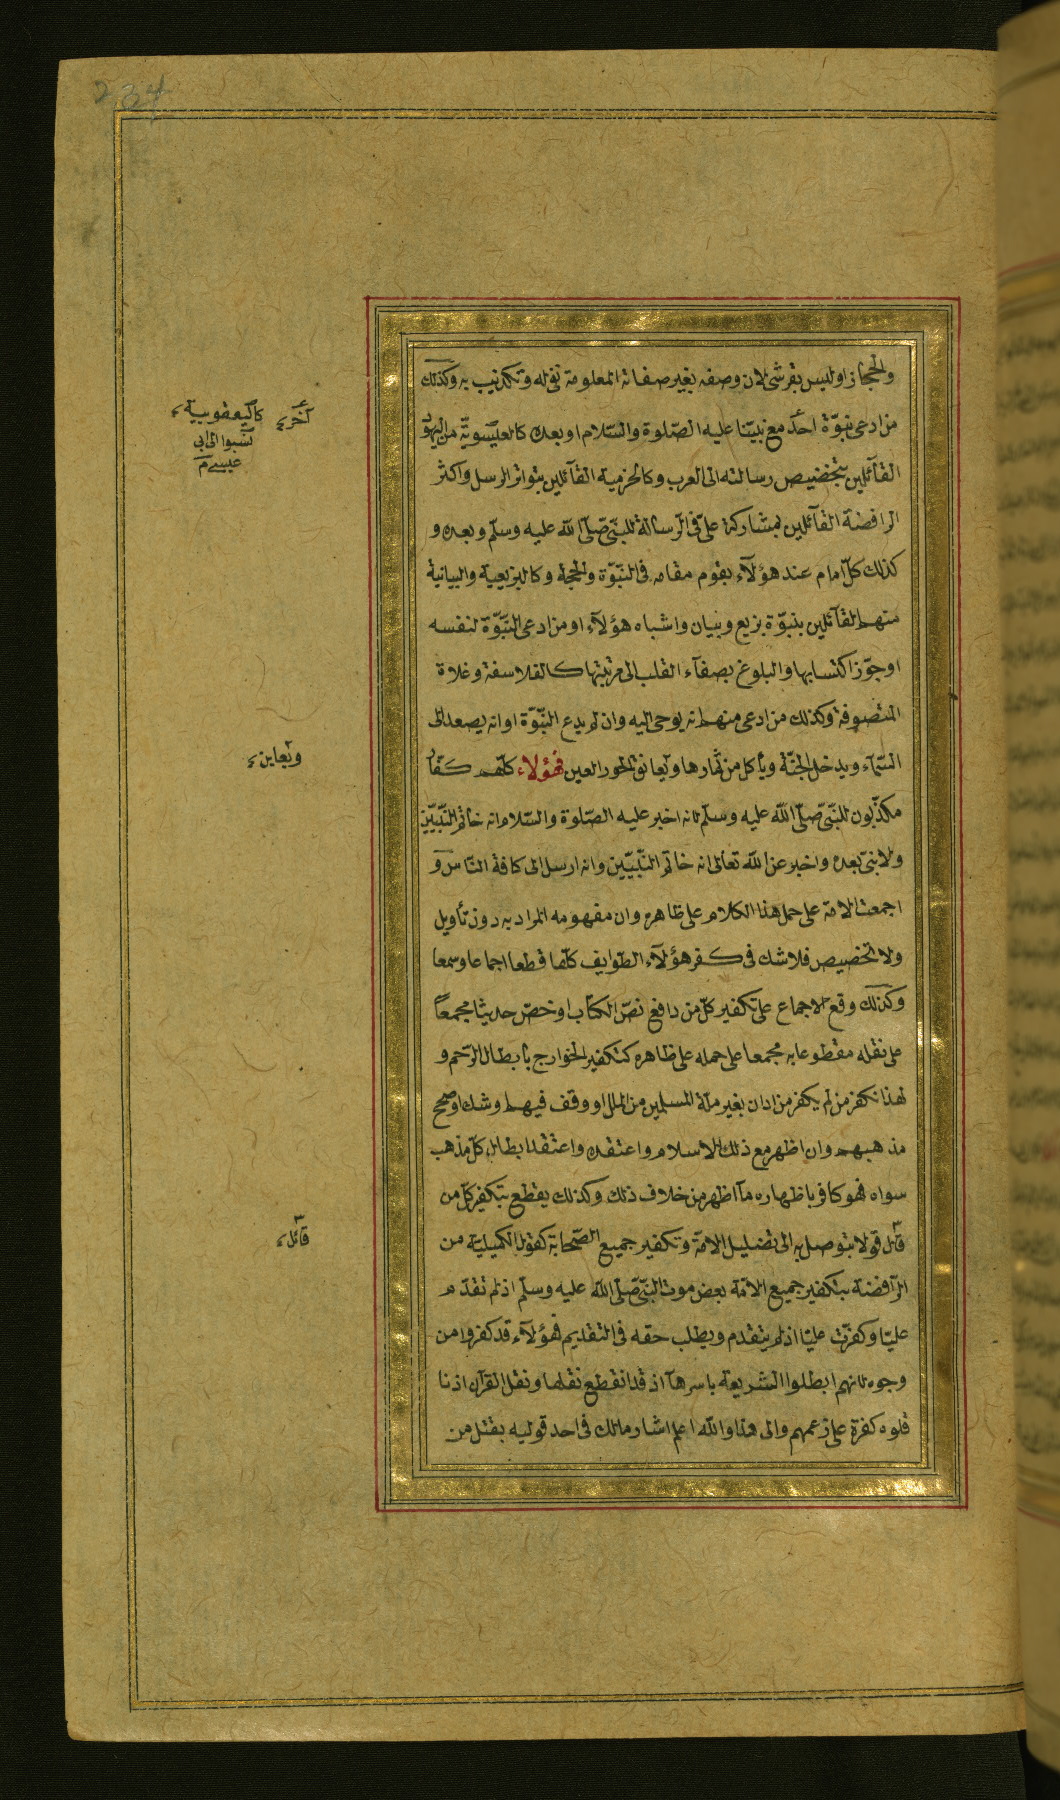 234
والحجاز او ليس بقرشى لان وصفه بغير صفاته المعلومة نفى له وتكذيب به وكذلك
من ادعى نبوّة احد مع نبيّنا عليه الصّلوة والسّلام او بعده كالعيسوية من اليهود
القآئلين بتخصيص رسالته الى العرب وكالخرمية القآئلين بتواتر الرسل واكثر
الرافضة القآئلين بمشاركة علىّ فى الرسالة للنبىّ صلّى الله عليه وسلّم وبعده و
كذلك كلّ امام عند هؤلآء يقوم مقامه فى النبّوة والحجة وكالبزيعية والبيانية
منهم القآئلين بنبوّة بزيع وبيان واشباه هؤلآء او من ادعى النبّوّة لنفسه
او جوّز اكتسابها والبلوغ بصفآء القلب الى مرتبتها كالفلاسفة وغلاة
المتصوفة وكذلك من ادعى منهم انه يوحى اليه وان لم يدع النبّوّة او انه يصعد الى
السّمآء ويدخل الجنّة ويأكل من ثمارها ويعانق الحور العين فهؤلاء كلّهم كفّار
مكذّبون للنبىّ صلّى الله عليه وسلّم لانه اخبر عليه الصّلوة والسّلام انه خاتم النّبيّين
ولا نبىّ بعده واخبر عن الله تعالى انه خاتم النّبيّين وانه ارسل الى كافة النّاس و
اجمعت الامة على حمل هذا الكلام على ظاهره وان مفهومه المراد به دون تأويل
ولا تخصيص فلا شك فى كفر هؤلآء الطّوايف كلّها قطعا اجماعا وسمعا
وكذلك وقع الاجماع على تكفير كلّ من دافع نصّ الكتاب او خصّ حديثا مجمعاً
على نقله مقطوعا به مجمعا على حمله على ظاهره كتكفير الخوارج بأبطال الرّجم و
لهذا نكفر من لم يكفر من ادان بغير ملّة المسلمين من الملل او وقف فيهم او شك او صحح
مذهبهم وان اظهر مع ذلك الاسلام واعتقده واعتقد ابطال كلّ مذهب
سواه فهو كافر باظهاره مآ اظهر من خلاف ذلك وكذلك يقطع بتكفير كلّ من
قال قولا يتوصل به الى تضليل الامّة وتكفير جميع الصّحابة كقول الكميلية من
الرّافضة بتكفير جميع الامّة بعض موت النبّى صلّى الله عليه وسلّم اذ لم تقدّم
عليّا وكفرّت عليّا اذ لم يتقدم ويطلب حقه فى التقديم فهؤلآء قد كفروا من
وجوه لانهم ابطلوا الشريعة باسرهآ اذ قد انقطع نقلها ونقل القرآن اذ نا
قلوه كفرة على زعمهم والى هذا والله اعلم اشار مالك فى احد قوليه بقتل من
آخر
كاليعقوبية
نسبوا الى ابى
عيسى
ويعاين
قائل